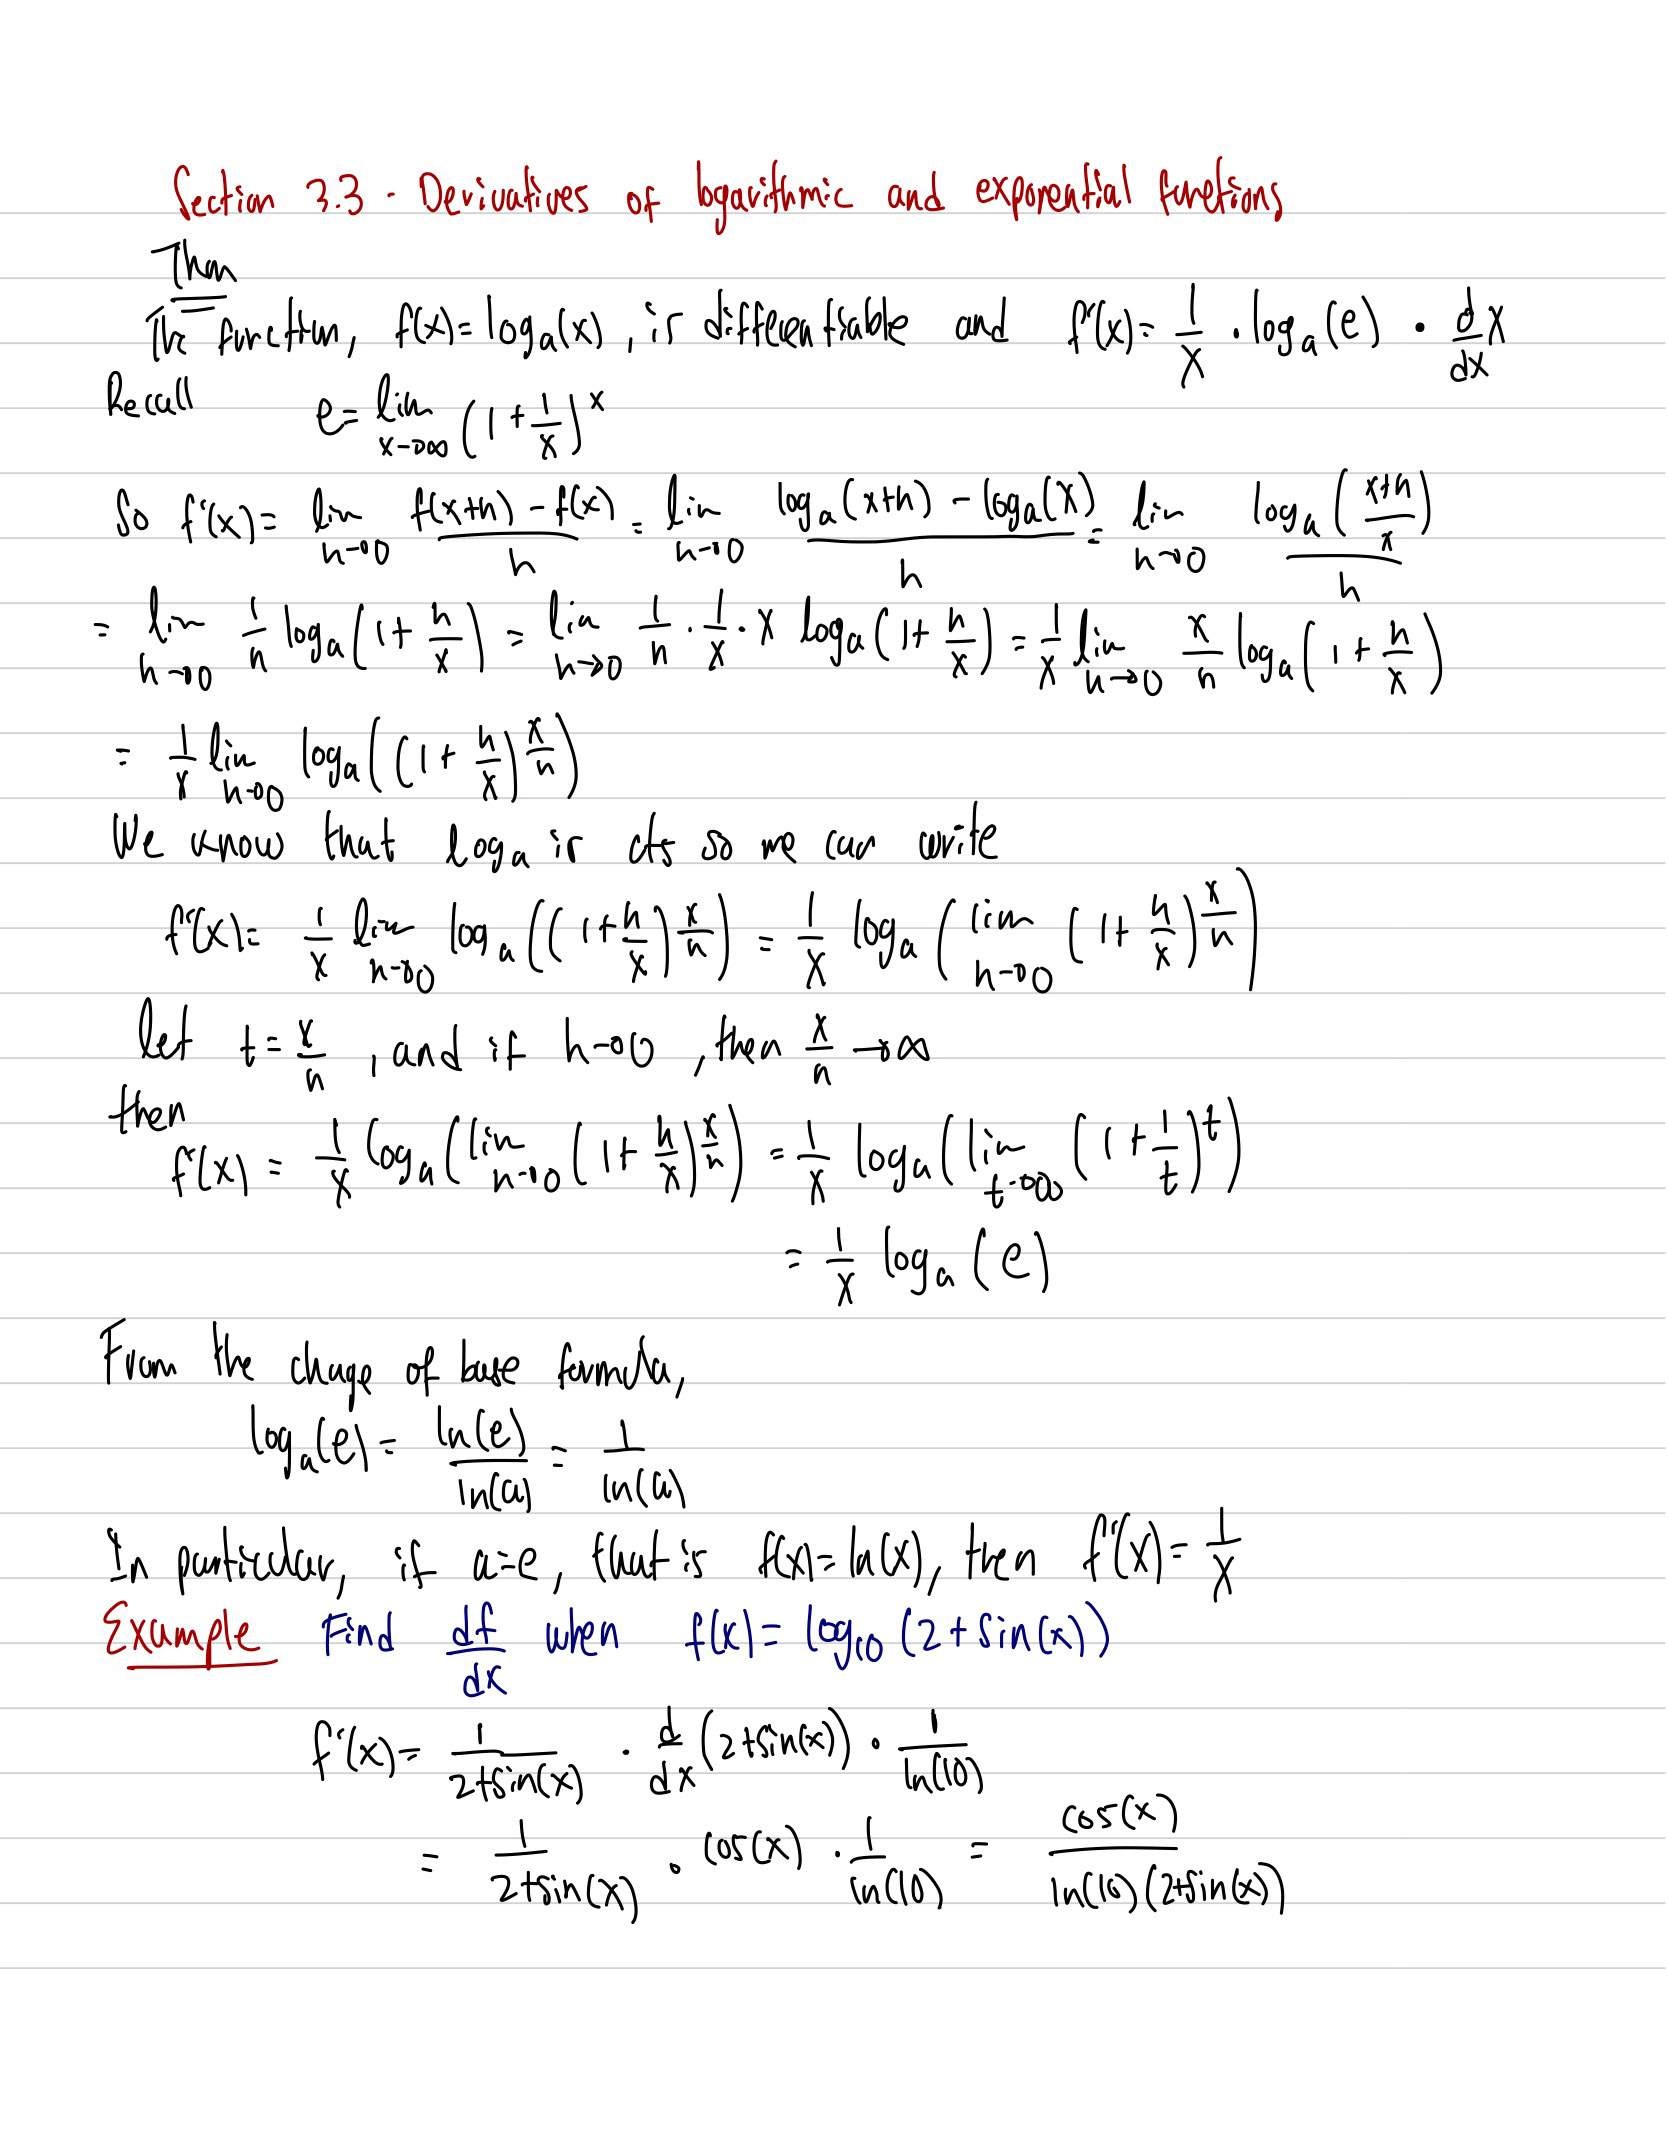 Section 3.3 - Derivatives of logarithmic and exponential functions
Thm
The function, f(x) = log_a(x), is differentiable and f'(x) = 1/x · log_a(e) · d/dx x
Recall e = lim_{x→∞} (1 + 1/x)^x
So f'(x) = lim_{h→0} (f(x+h) - f(x))/h = lim_{h→0} (log_a(x+h) - log_a(x))/h = lim_{h→0} log_a((x+h)/x)/h
= lim_{h→0} 1/h log_a(1 + h/x) = lim_{h→0} 1/h · 1/x · x log_a(1 + h/x) = 1/x lim_{h→0} x/h log_a(1 + h/x)
= 1/x lim_{h→0} log_a((1 + h/x)^{x/h})
We know that log_a is cts so we can write
f'(x) = 1/x lim_{h→0} log_a((1 + h/x)^{x/h}) = 1/x log_a(lim_{h→0} (1 + h/x)^{x/h})
let t = x/h, and if h→0, then x/h → ∞
then
f'(x) = 1/x log_a(lim_{h→0} (1 + h/x)^{x/h}) = 1/x log_a(lim_{t→∞} (1 + 1/t)^t)
= 1/x log_a(e)
From the change of base formula,
log_a(e) = ln(e)/ln(a) = 1/ln(a)
In particular, if a=e, that is f(x) = ln(x), then f'(x) = 1/x
Example Find df/dx when f(x) = log_10(2+sin(x))
f'(x) = 1/(2+sin(x)) · d/dx(2+sin(x)) · 1/ln(10)
= 1/(2+sin(x)) · cos(x) · 1/ln(10) = cos(x)/(ln(10)(2+sin(x)))